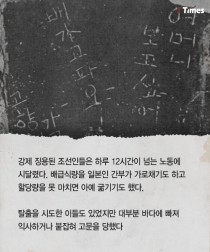 Times
어머니
보고싶어
배가고파요
강제 징용된 조선인들은 하루 12시간이 넘는 노동에
시달렸다. 배급식량을 일본인 간부가 가로채기도 하고
할당량을 못 마치면 아예 굶기기도 했다.
탈출을 시도한 이들도 있었지만 대부분 바다에 빠져
익사하거나 붙잡혀 고문을 당했다